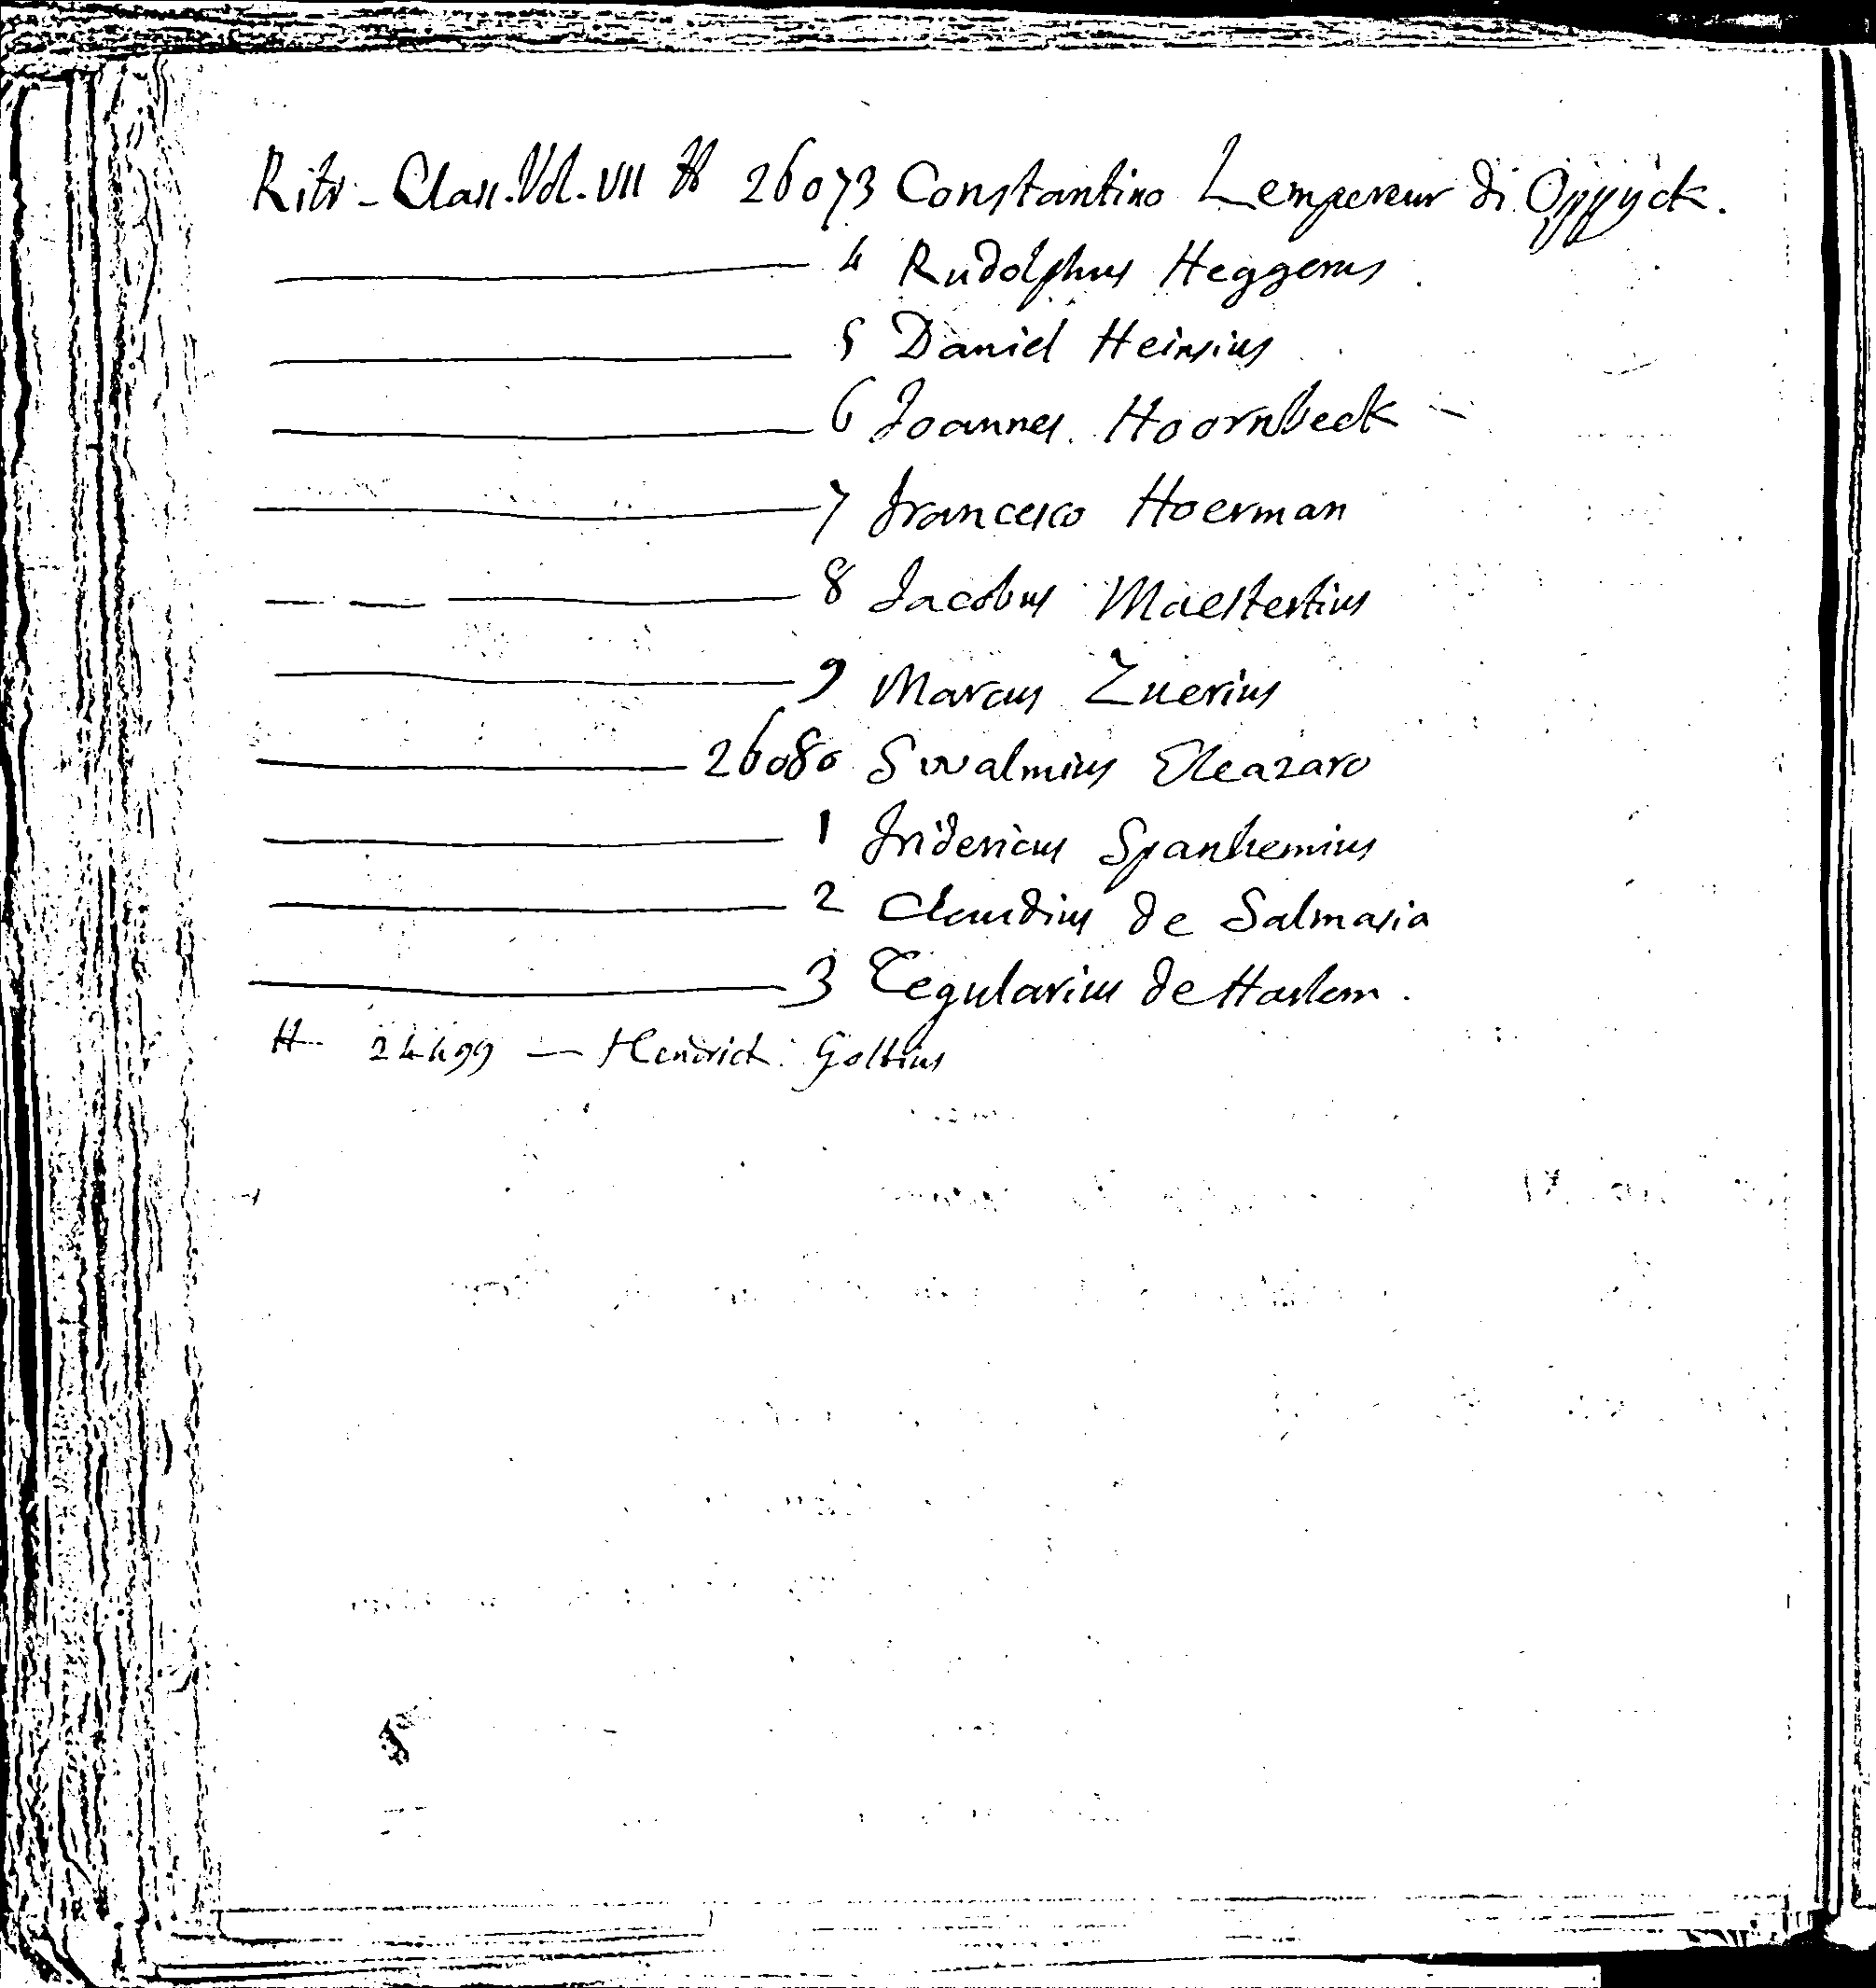 Ritr - Class. Vol. VII H 26073 Constantino Lempereur di Oppyck.
4 Rudolphus Heggerus
5 Daniel Heinsius
6 Joannes Hoornbeck
7 Francesco Hoerman
8 Jacobus Maestertius
9 Marcus Zuerius
26080 Swalmius Eleazaro
1 Fridericus Spanhemius
2 Claudius de Salmasia
3 Tegularius de Harlem.
H 24499 — Hendrick Goltius